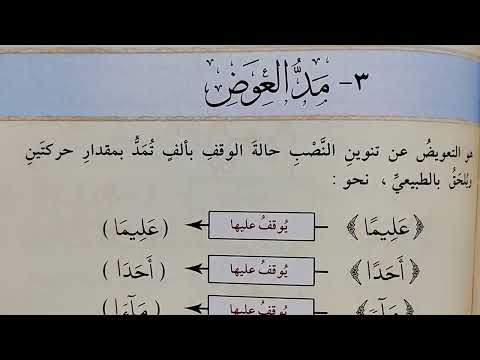 ٣- مَدُّ العِوَضِ
هو التعويضُ عن تنوينِ النَّصْبِ حالةَ الوقفِ بألفٍ تُمَدُّ بمقدارِ حركتَينِ
ويُلحَقُ بالطبيعيِّ ، نحو :
﴿عَلِيمًا﴾ يُوقفُ عليها (عَلِيمَا)
﴿أَحَدًا﴾ يُوقفُ عليها (أَحَدَا)
يُوقفُ عليها (مَآءَا)